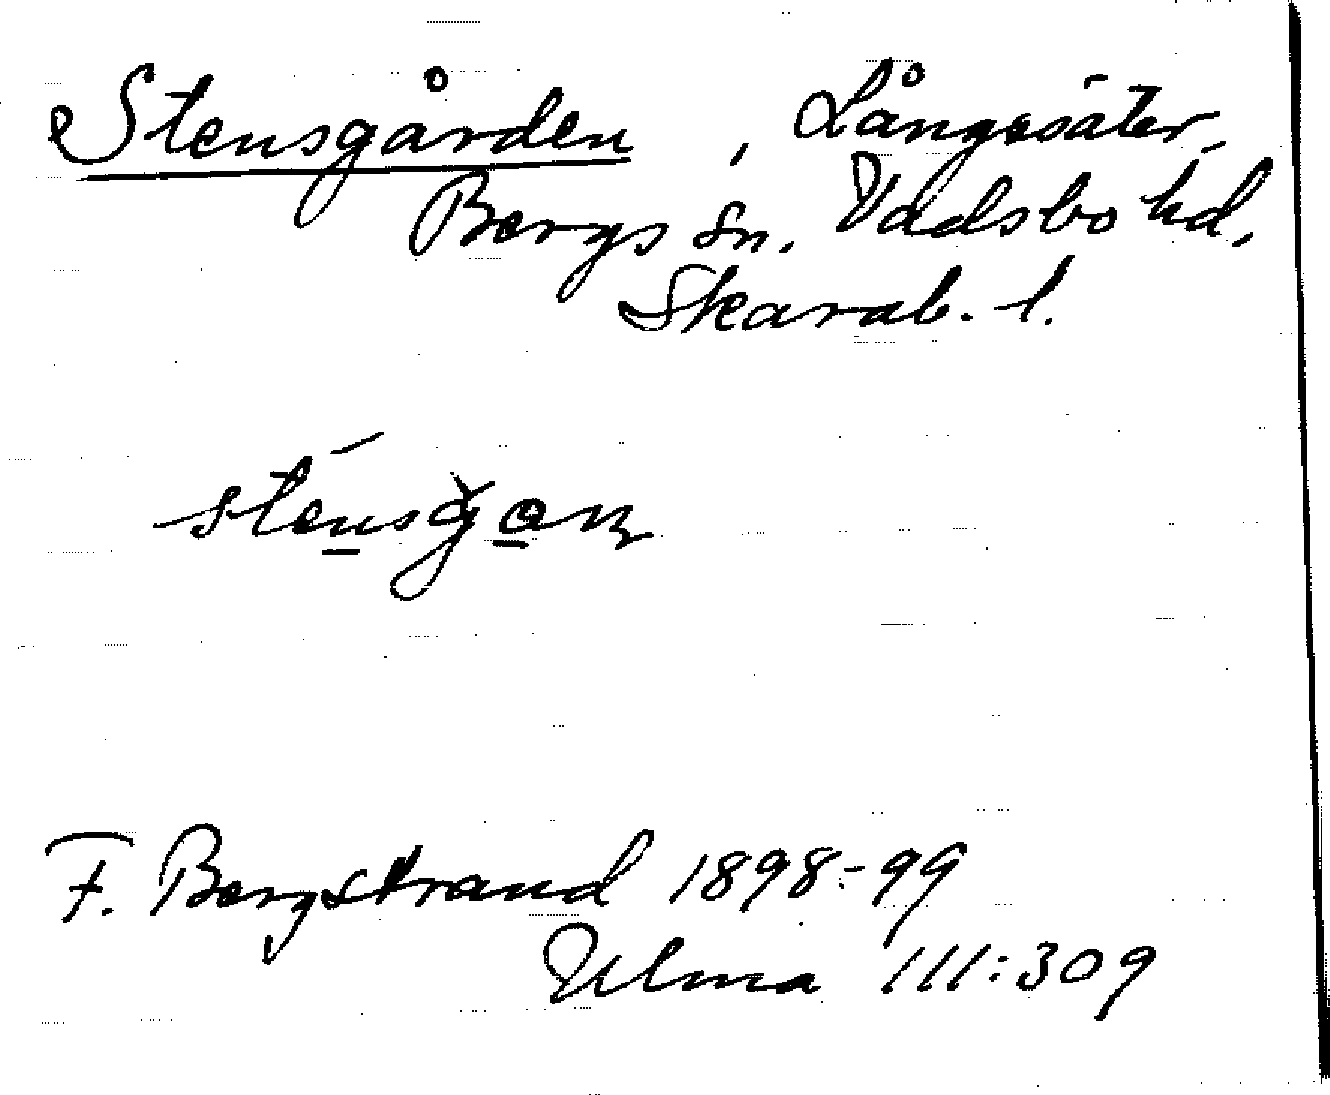 Stensgården, Långesäter,
Bergs sn. Vadsbo hd,
Skarab. l.
F. Bergstrand 1898-99
Ulma 111:309